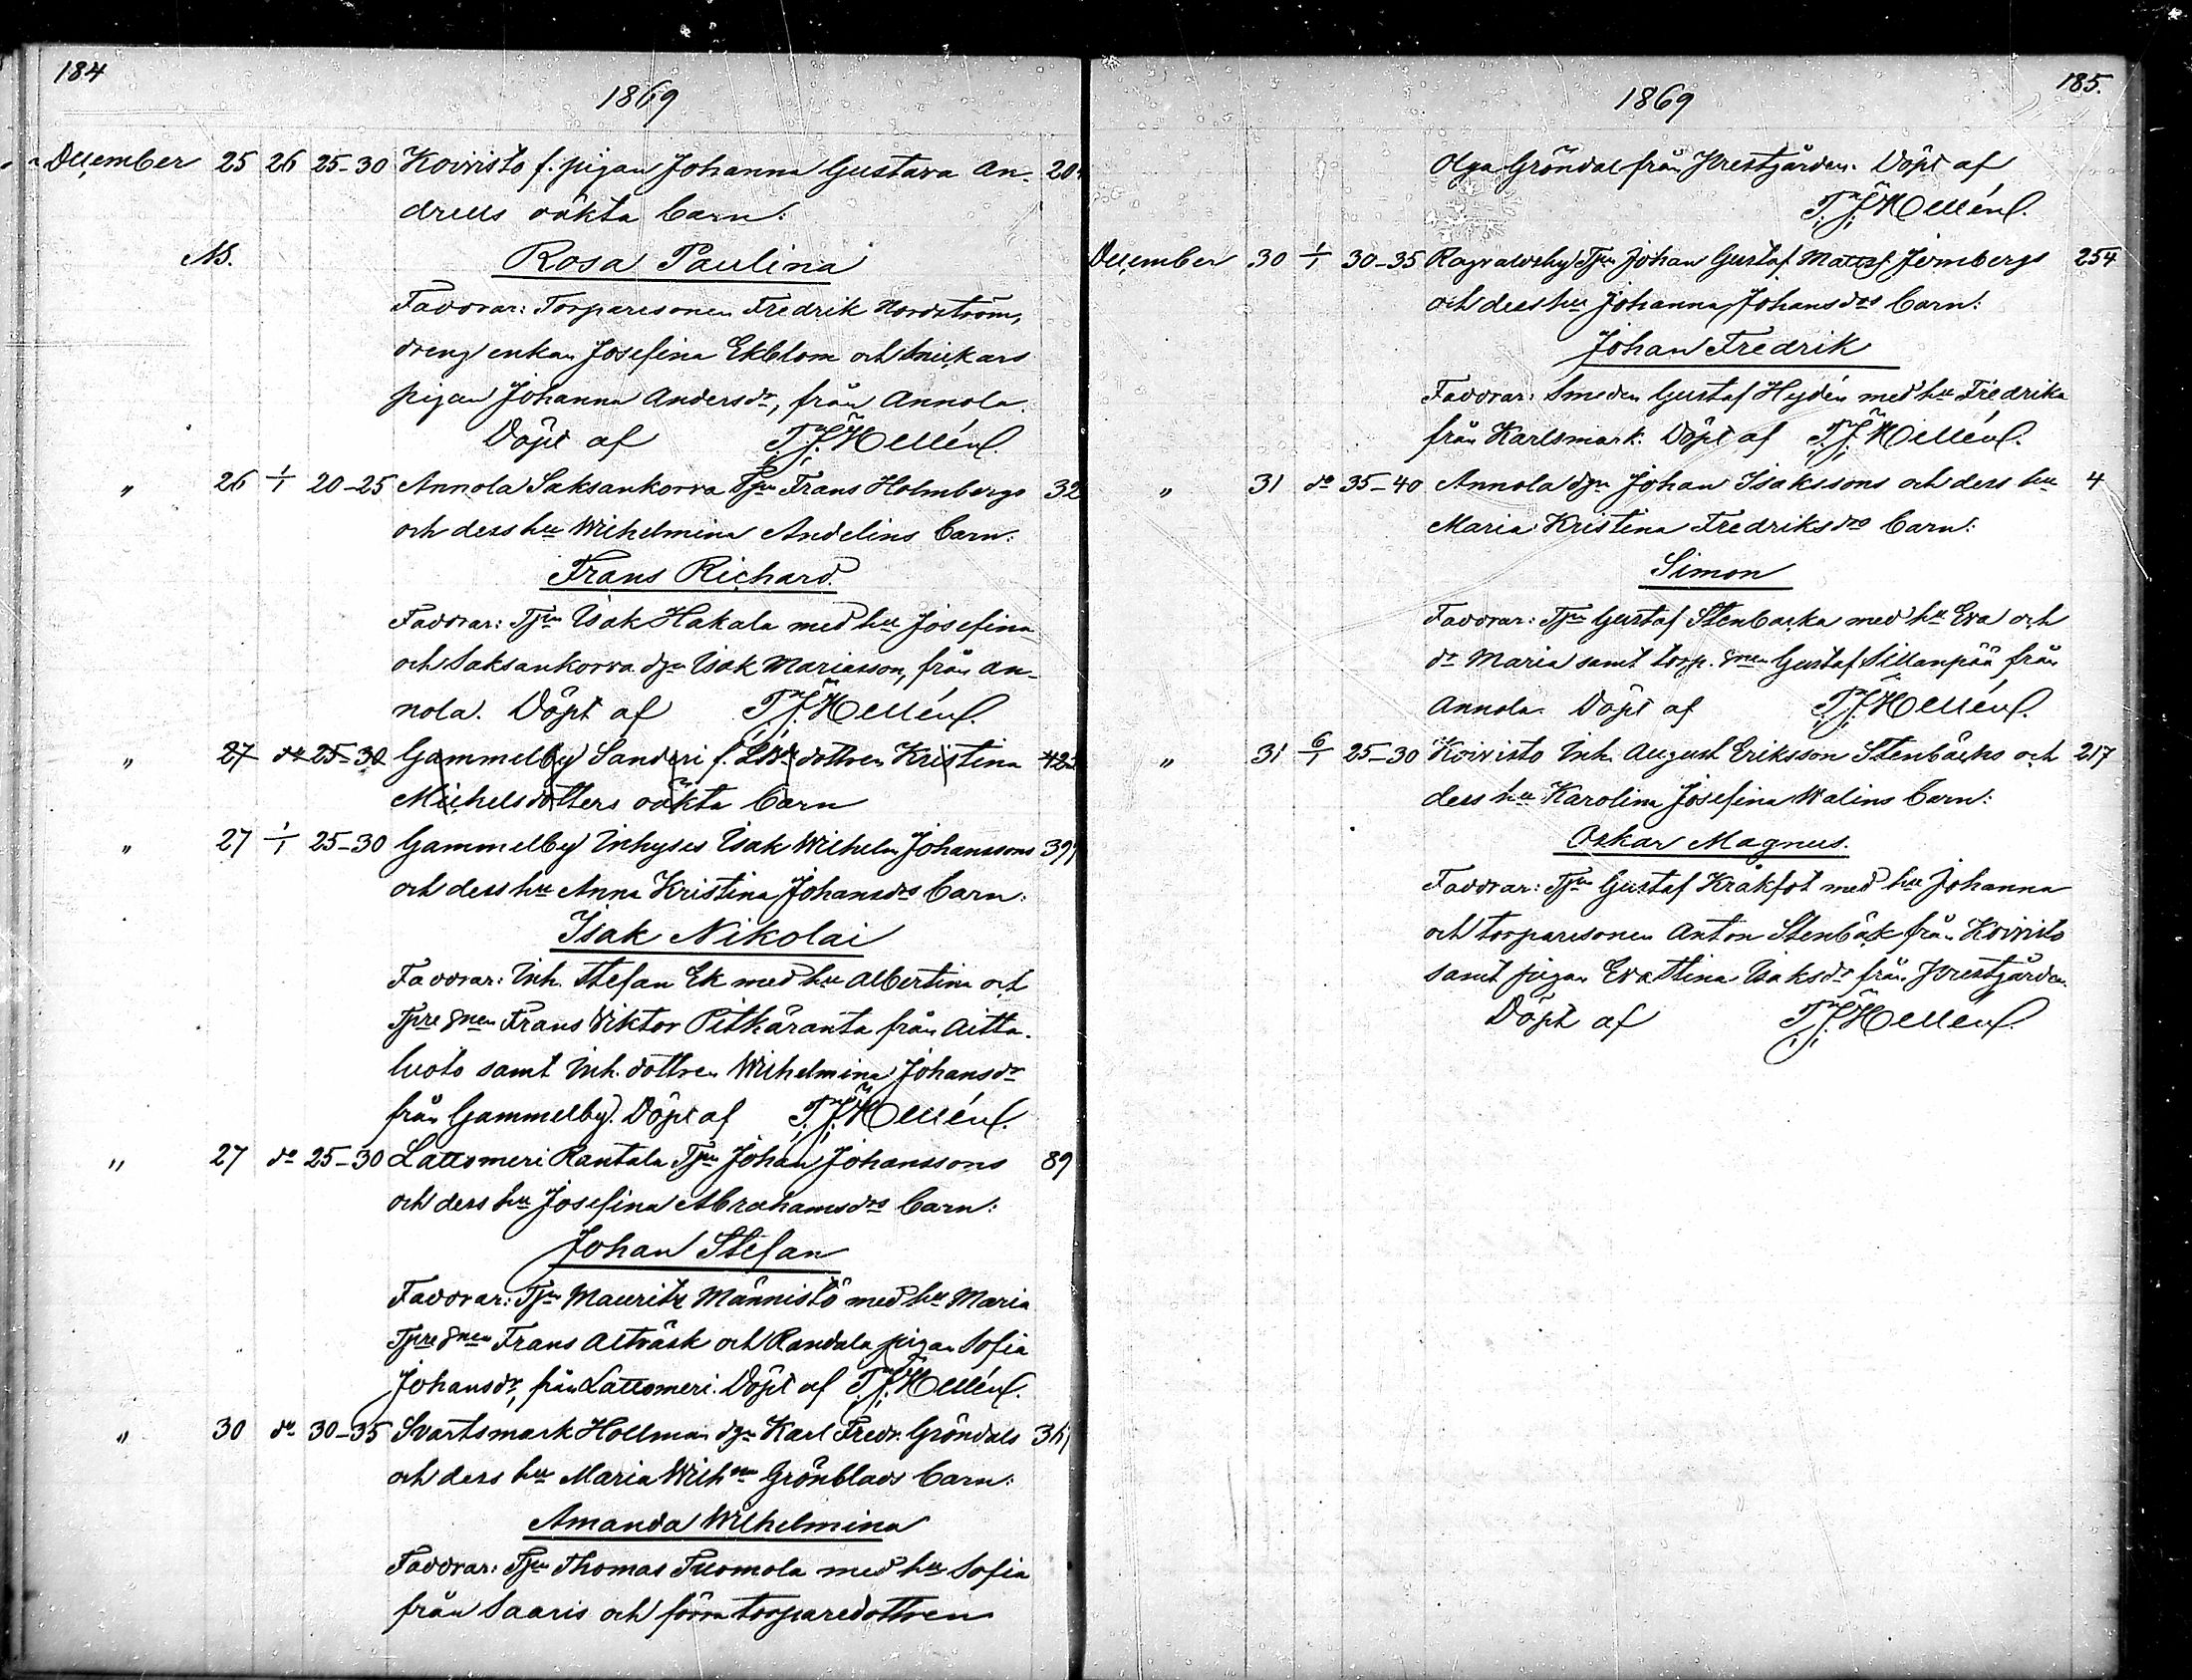 184
1869
December 25 26 25-30 Koivisto f. pigan Johanna Gustava An- 20
drells oäkta barn:
NB.
Rosa Paulina
Faddrar: Torparesonen Fredrik Nordström,
drengenkan Josefina Ekblom och Snickars
pigan Johanna Andersdr, från Annola.
Döpt af T. J. Hellén.
" 26 1/1 20-25 Annola Saksankorva Tpn Frans Holmbergs 32
och dess hu Wilhelmina Andelins barn:
Frans Richard.
Faddrar: Tpn Isak Hakala med hu Josefina
och Saksankorva dgn Isak Mariasson, från An-
nola. Döpt af T. J. Hellén.
" 27 do 25-30 Gammelby Sanderi f. dottren Kristina 42
Michelsdotters oäkta barn
" 27 1/1 25-30 Gammelby Inhyses Isak Wilhelm Johanssons 39
och dess hu Anna Kristina Johansdrs barn:
Isak Nikolai
Faddrar: Inh. Stefan Ek med hu Albertina och
Tpresnen Frans Viktor Pitkäranta från Aitta-
luoto samt Inh. dottren Wilhelmina Johansdr
från Gammelby. Döpt af T. J. Hellén.
" 27 do 25-30 Lattomeri Rantala Tpn Johan Johanssons 89
och dess hu Josefina Abrahamsdrs barn:
Johan Stefan
Faddrar: Tpn Mauritz Männistö med hu Maria
Tpresnen Frans Alträsk och Randala pigan Sofia
Johansdr, från Lattomeri. Döpt af T. J. Hellén.
" 30 do 30-35 Svartsmark Hollman dgn Karl Fredr. Gröndals 361
och dess hu Maria Wilhna Grönblads barn:
Amanda Wilhelmina
Faddrar: Tpn Thomas Tuomola med hu Sofia
från Saaris och förra torparedottren
185.
1869
Olga Gröndal från Prestgården. Döpt af
T. J. Hellén.
December 30 1/1 30-35 Ragvaldsby Tpn Johan Gustaf Mattsf Jernbergs 254
och dess hu Johanna Johansdrs barn:
Johan Fredrik
Faddrar: Smeden Gustaf Hydén med hu Fredrika
från Karlsmark. Döpt af T. J. Hellén.
" 31 do 35-40 Annola dgn Johan Isakssons och dess hu 4
Maria Kristina Fredriksdrs barn:
Simon
Faddrar: Tpn Gustaf Stenbacka med hu Eva och
dr Maria samt torp. snen Gustaf Sillanpää från
Annola. Döpt af T. J. Hellén.
" 31 6/1 25-30 Koivisto Inh. August Eriksson Stenbäcks och 217
dess hu Karolina Josefina Walins barn:
Oskar Magnus.
Faddrar: Tpn Gustaf Kråkfot med hu Johanna
och torparesonen Anton Stenbäck från Koivisto
samt pigan Eva Stina Isaksdr från Prestgården.
Döpt af T. J. Hellén.